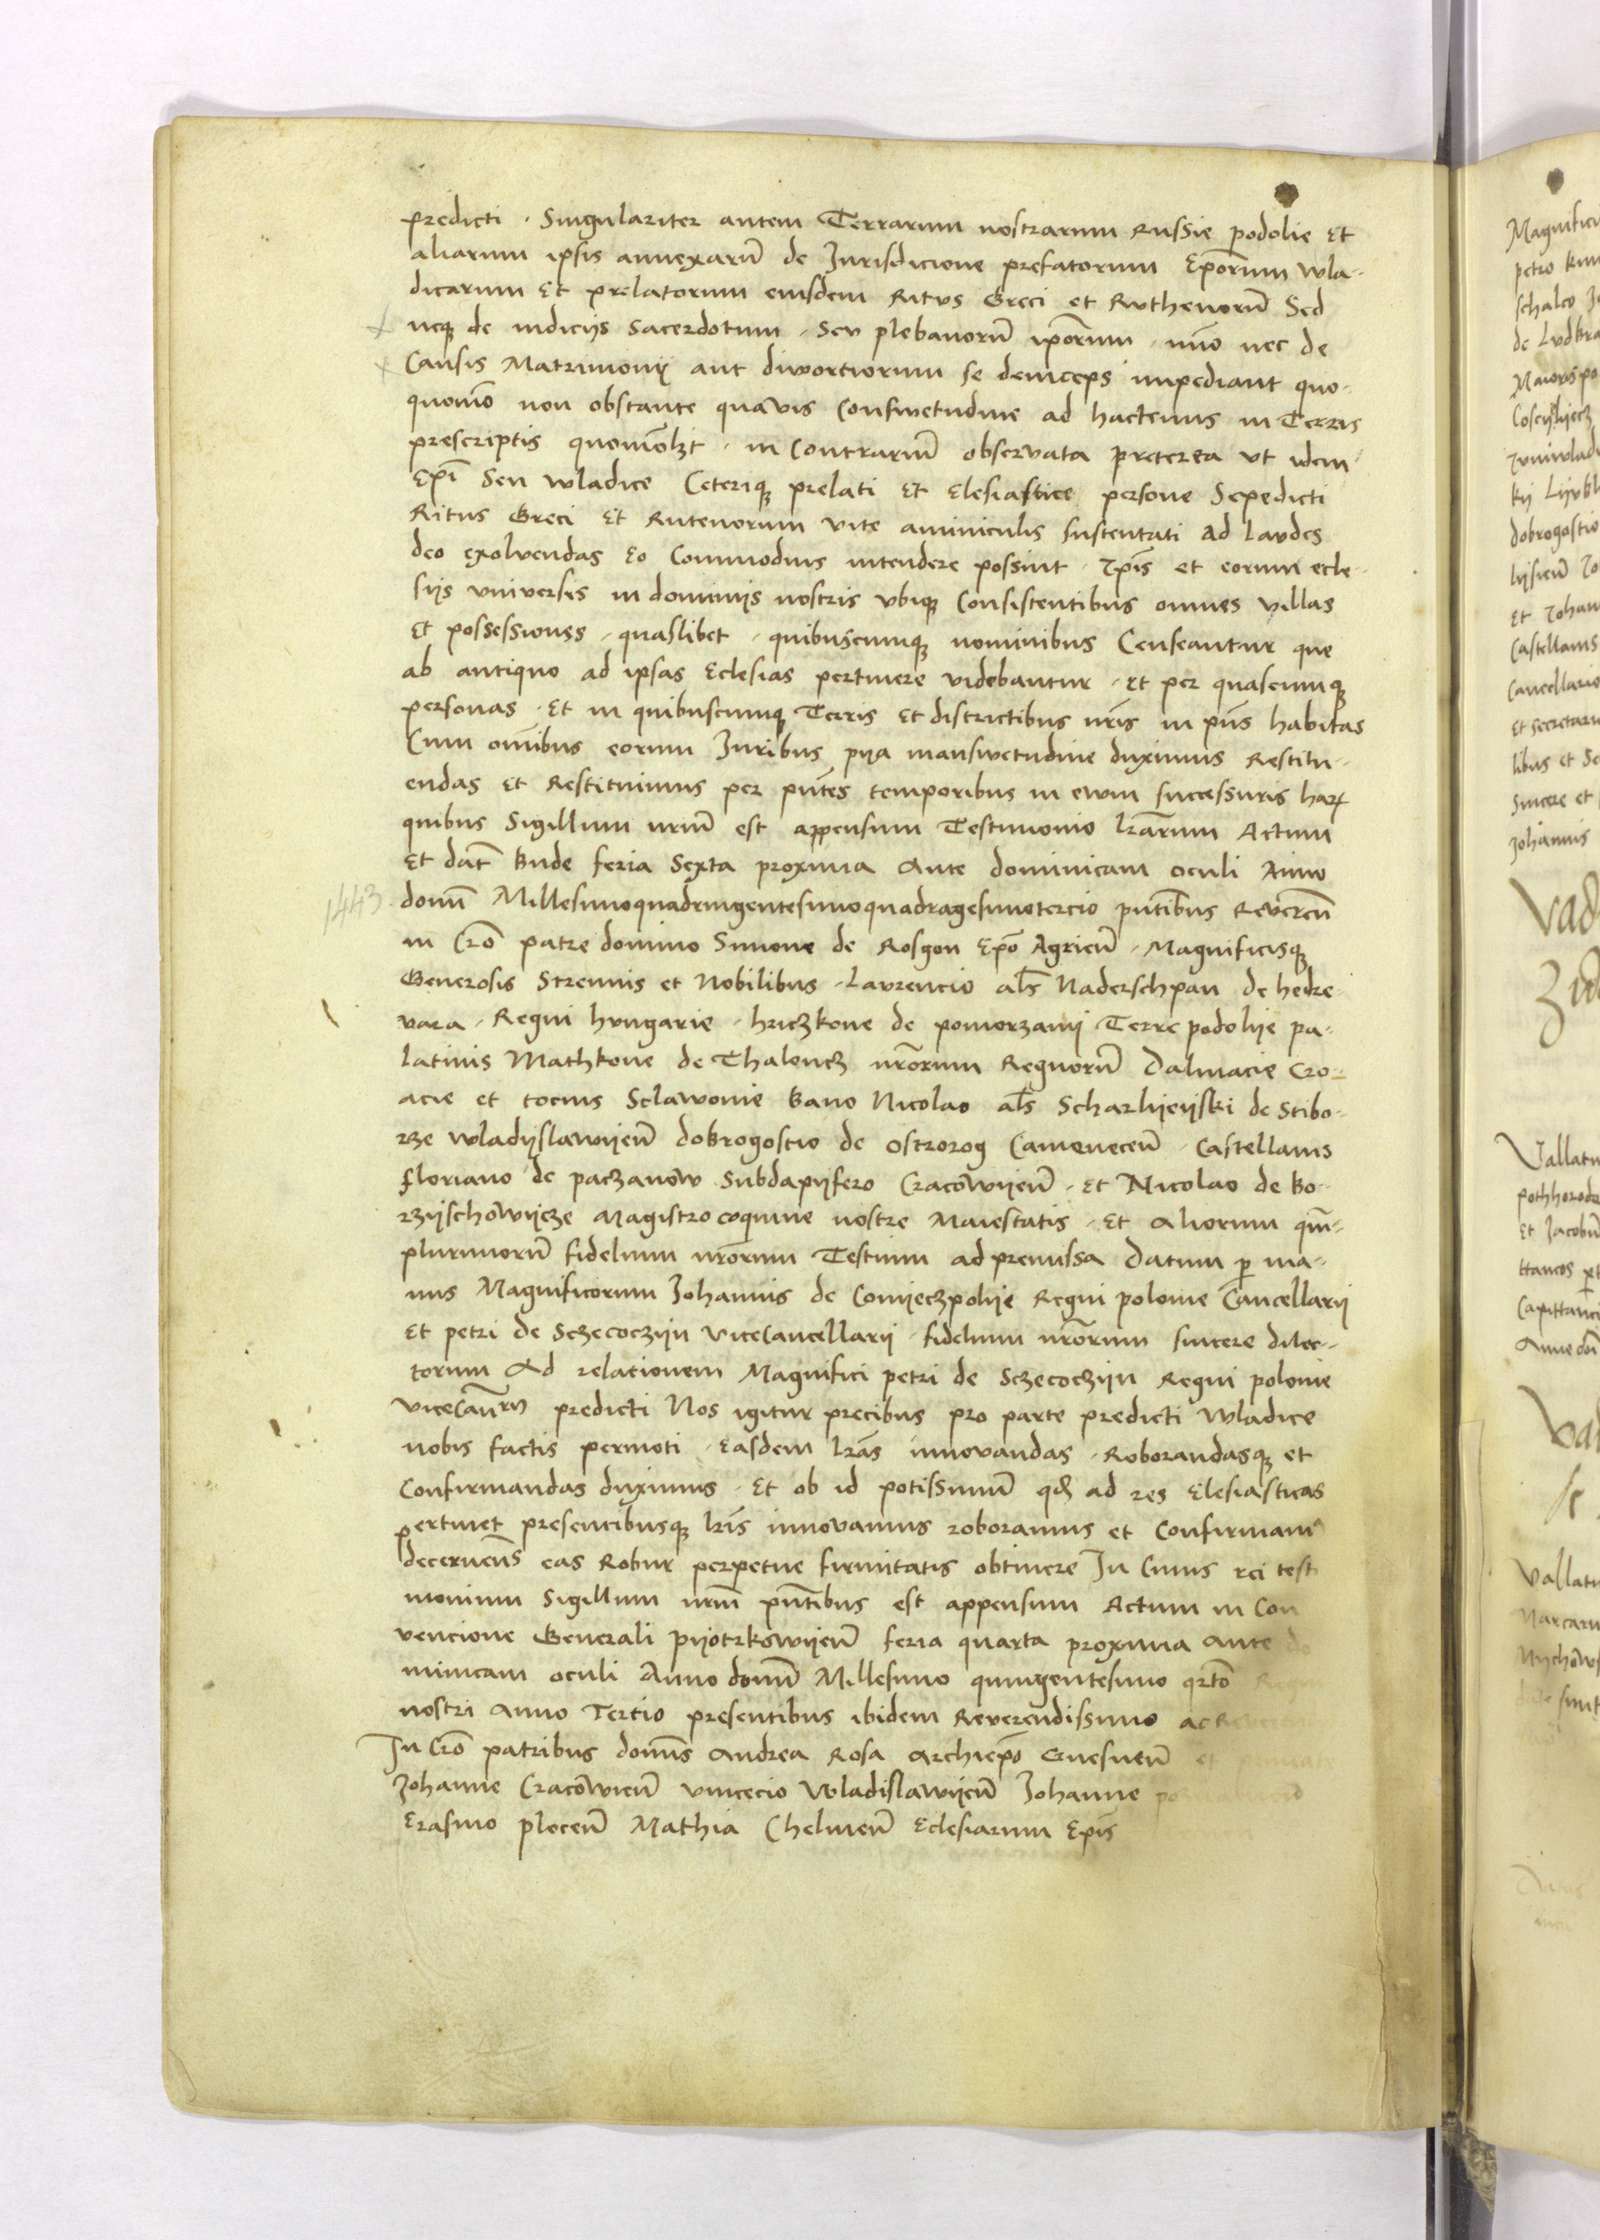 predicti . Singulariter autem Terrarum nostrarum Russie podolie Et
aliarum ipsis annexarū de Jurisdicione prefatorum Ep̄orum wla-
dicarum Et prelatorum eiusdem Ritus Greci et Ruthenorū Sed
neq; de iudicijs Sacerdotum . Seu plebanorū ip̄orum . īmo nec de
Causis Matrimonij aut diuortiorum se deinceps impediant quo-
quomō non obstante quauis Consuetudine ad hactenus in Terris
prescriptis quomōlȝt . in Contrariū obseruata preterea vt idem
Ep̄i Seu wladice Ceteriq; prelati Et Eclesiastice persone Sepedicti
Ritus Greci Et Rutenorum vite aminiculis sustentati ad laudes
deo exoluendas Eo Commodius intendere possint . Ip̄is et eorum ecle-
sijs vniuersis in dominijs nostris vbiq; Consistentibus omnes villas
Et possessiones . quaslibet . quibuscunq; nominibus Censeantur que
ab antiquo ad ipsas Eclesias pertinere videbantur . Et per quascunq;
personas . Et in quibuscunq; Terris Et districtibus nr̄is in pn̄s habitas
Cum om̄ibus eorum Juribus pya mansuetudine duximus Restitu-
endas Et Restituimus per pn̄tes temporibus in ewm successuris harȝ
quibus Sigillum nrūm est appensum Testimonio lr̄arum Actum
Et dat̄ Bude feria Sexta proxima Ante dominicam oculi Anno
1443
domī Millesimoquadringentesimoquadragesimotercio pn̄tibus Reueren̄
in Cr̄o patre domino Simone de Rosgon Ep̄o Agrien̄ . Magnificisq;
Generosis Strenuis et Nobilibus . Laurencio al̄s Naderschpan de hedre-
vara . Regni hungarie . hriczkone de pomorzanij Terre podolije pa-
latinis Mathkone de Thaloncz nr̄orum Regnorū Dalmacie Cro-
acie et tocius Sclawonie Bano Nicolao al̄s Scharlijeijski de Stibo-
rze wladijslawijen̄ dobrogostio de ostrorog Camenecen̄ . Castellanis
floriano de paczanow Subdapifero Cracowijen̄ . et Nicolao de Bo-
rzijschowijcze Magistro coquine nostre Maiestatis . Et aliorum qm̄-
plurimorū fidelium nr̄orum Testium ad premissa Datum ꝑ ma-
nus Magnificorum Johannis de Conijeczpolije Regni polonie Cancellarij
Et petri de Sczecoczijn viceCancellarij . fidelium nr̄orum sincere dilec-
torum Ad relationem Magnifici petri de Sczecoczijn Regni polonie
viceCan̄rij predicti Nos igitur precibus pro parte predicti wladice
nobis factis permoti . Easdem lr̄as innouandas . Roborandasq; et
Confirmandas duximus . Et ob id potissimū qd̄ ad res Eclesiasticas
pertinet presentibusq; lr̄is innouamus roboramus et Confirmam9
decernen̄s eas Robur perpetue firmitatis obtinere In Cuius rei testi
monium Sigillum nrm̄ pn̄tibus est appensum Actum in Con
uencione Generali Pijotrkowijen̄ feria quarta proxima ante do
minicam oculi Anno domī Millesimo quingentesimo qrto Regni
nostri Anno Tertio presentibus ibidem Reuerendissimo ac Reueren
In Cr̄o patribus domīs Andrea Rosa Archiep̄o Gnesnen̄ et
Johanne Cracowien̄ vincecio Wladislawijen̄ Johanne
Erasmo plocen̄ Mathia Chelmen̄ Eclesiarum Ep̄is